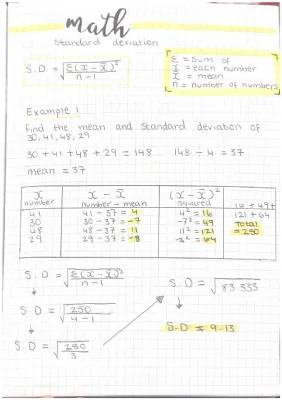 math
Standard deviation
S.D = √Σ(x - x̄)²
n-1
Σ = Sum of
x = each number
x̄ = mean
n = number of numbers
Example 1
Find the mean and Standard deviation of
30, 41, 48, 29
30 + 41 + 48 + 29 = 148 148 ÷ 4 = 37
mean = 37
x x - x̄ (x - x̄)²
number number - mean squared 16 + 49 +
41 41 - 37 = 4 4² = 16 121 + 64
30 30 - 37 = -7 -7² = 49 Total
48 48 - 37 = 11 11² = 121 = 250
29 29 - 37 = -8 -8² = 64
S.D = √Σ(x - x̄)²
n-1
S.D = √83.333
S.D = √250
4-1
S.D = 9.13
S.D = √250
3